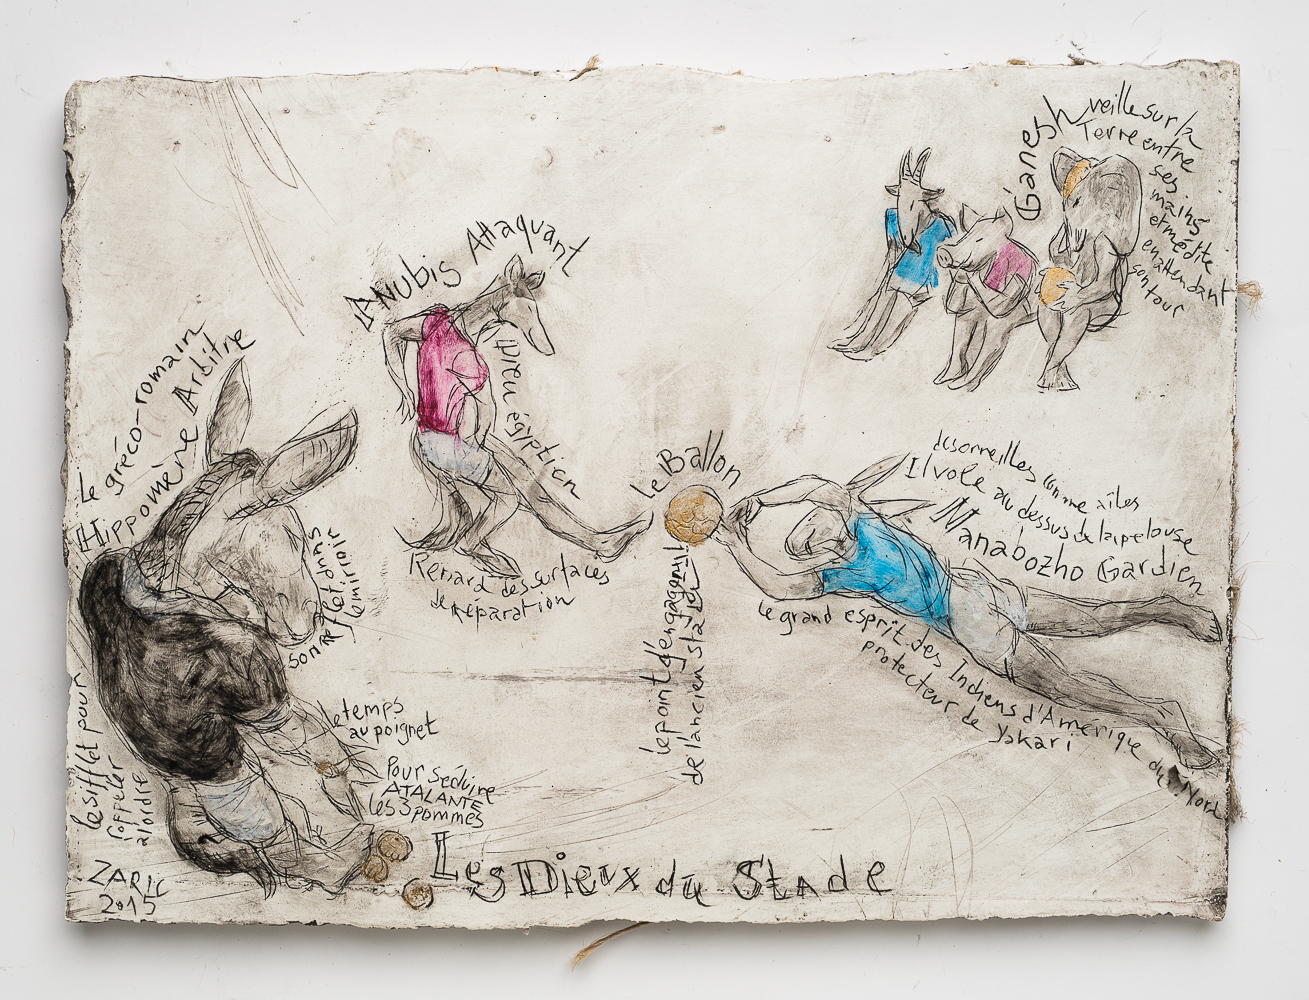 Gánesh veille sur la
Terre entre
ses
mains
et médite
en attendant
son tour
Anubis Attaquant
Dieu égyptien
Renard des surfaces
de réparation
le gréco-romain
Hippomène Arbitre
son
féminioir
le Ballon
le point d'engagement
de l'ancien stade
des orreilles comme ailes
Il vole au dessus de la pelouse
Nanabozho Gardien
le grand esprit des Indiens d'Amérique du Nord
protecteur de Yakari
le temps
au poignet
le sifflet pour
l'appeler
à l'ordre
Pour séduire
ATALANTE
les 3 pommes
Les Dieux du Stade
ZARIC
2015